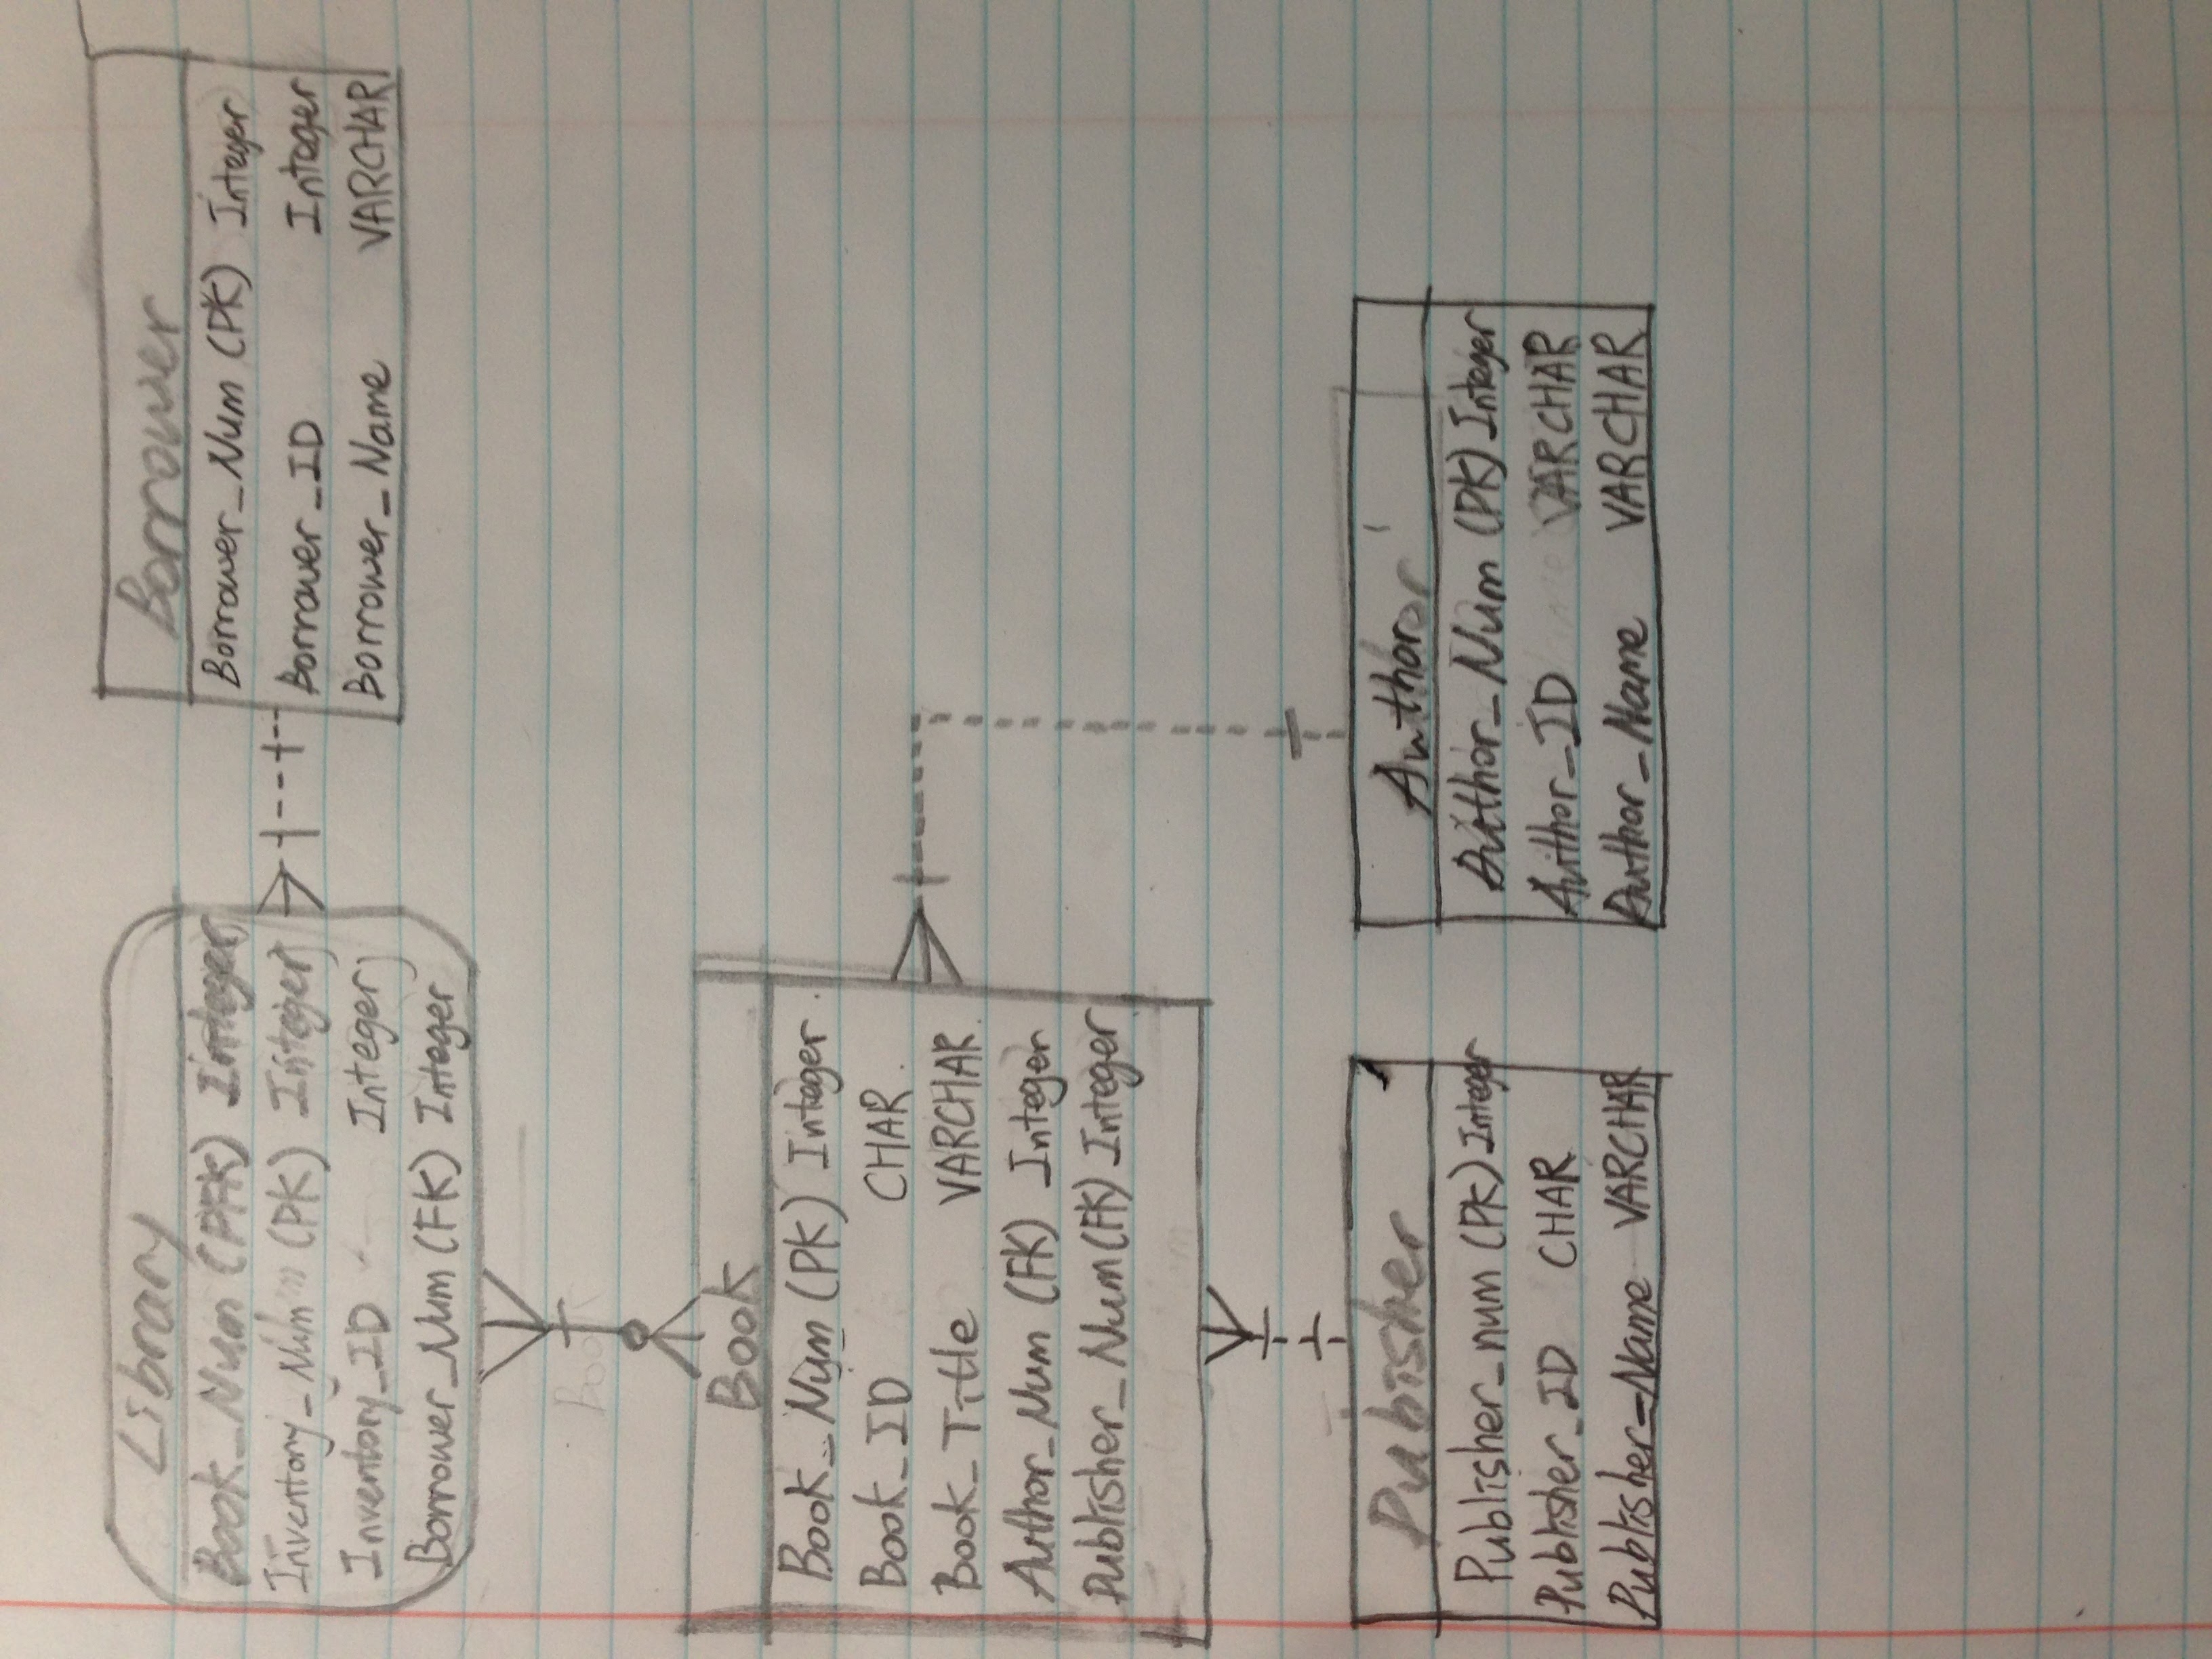 Library
Book_Num (PFK) Integer
Inventory_Num (PK) Integer
Inventory_ID Integer
Borrower_Num (FK) Integer
Borrower
Borrower_Num (PK) Integer
Borrower_ID Integer
Borrower_Name VARCHAR
Book
Book
Book_Num (PK) Integer
Book_ID CHAR
Book_Title VARCHAR
Author_Num (FK) Integer
Publisher_Num (FK) Integer
Pubisher
Publisher_num (PK) Integer
Publisher_ID CHAR
Publisher_Name VARCHAR
Author
Author_Num (PK) Integer
Author_ID VARCHAR
Author_Name VARCHAR